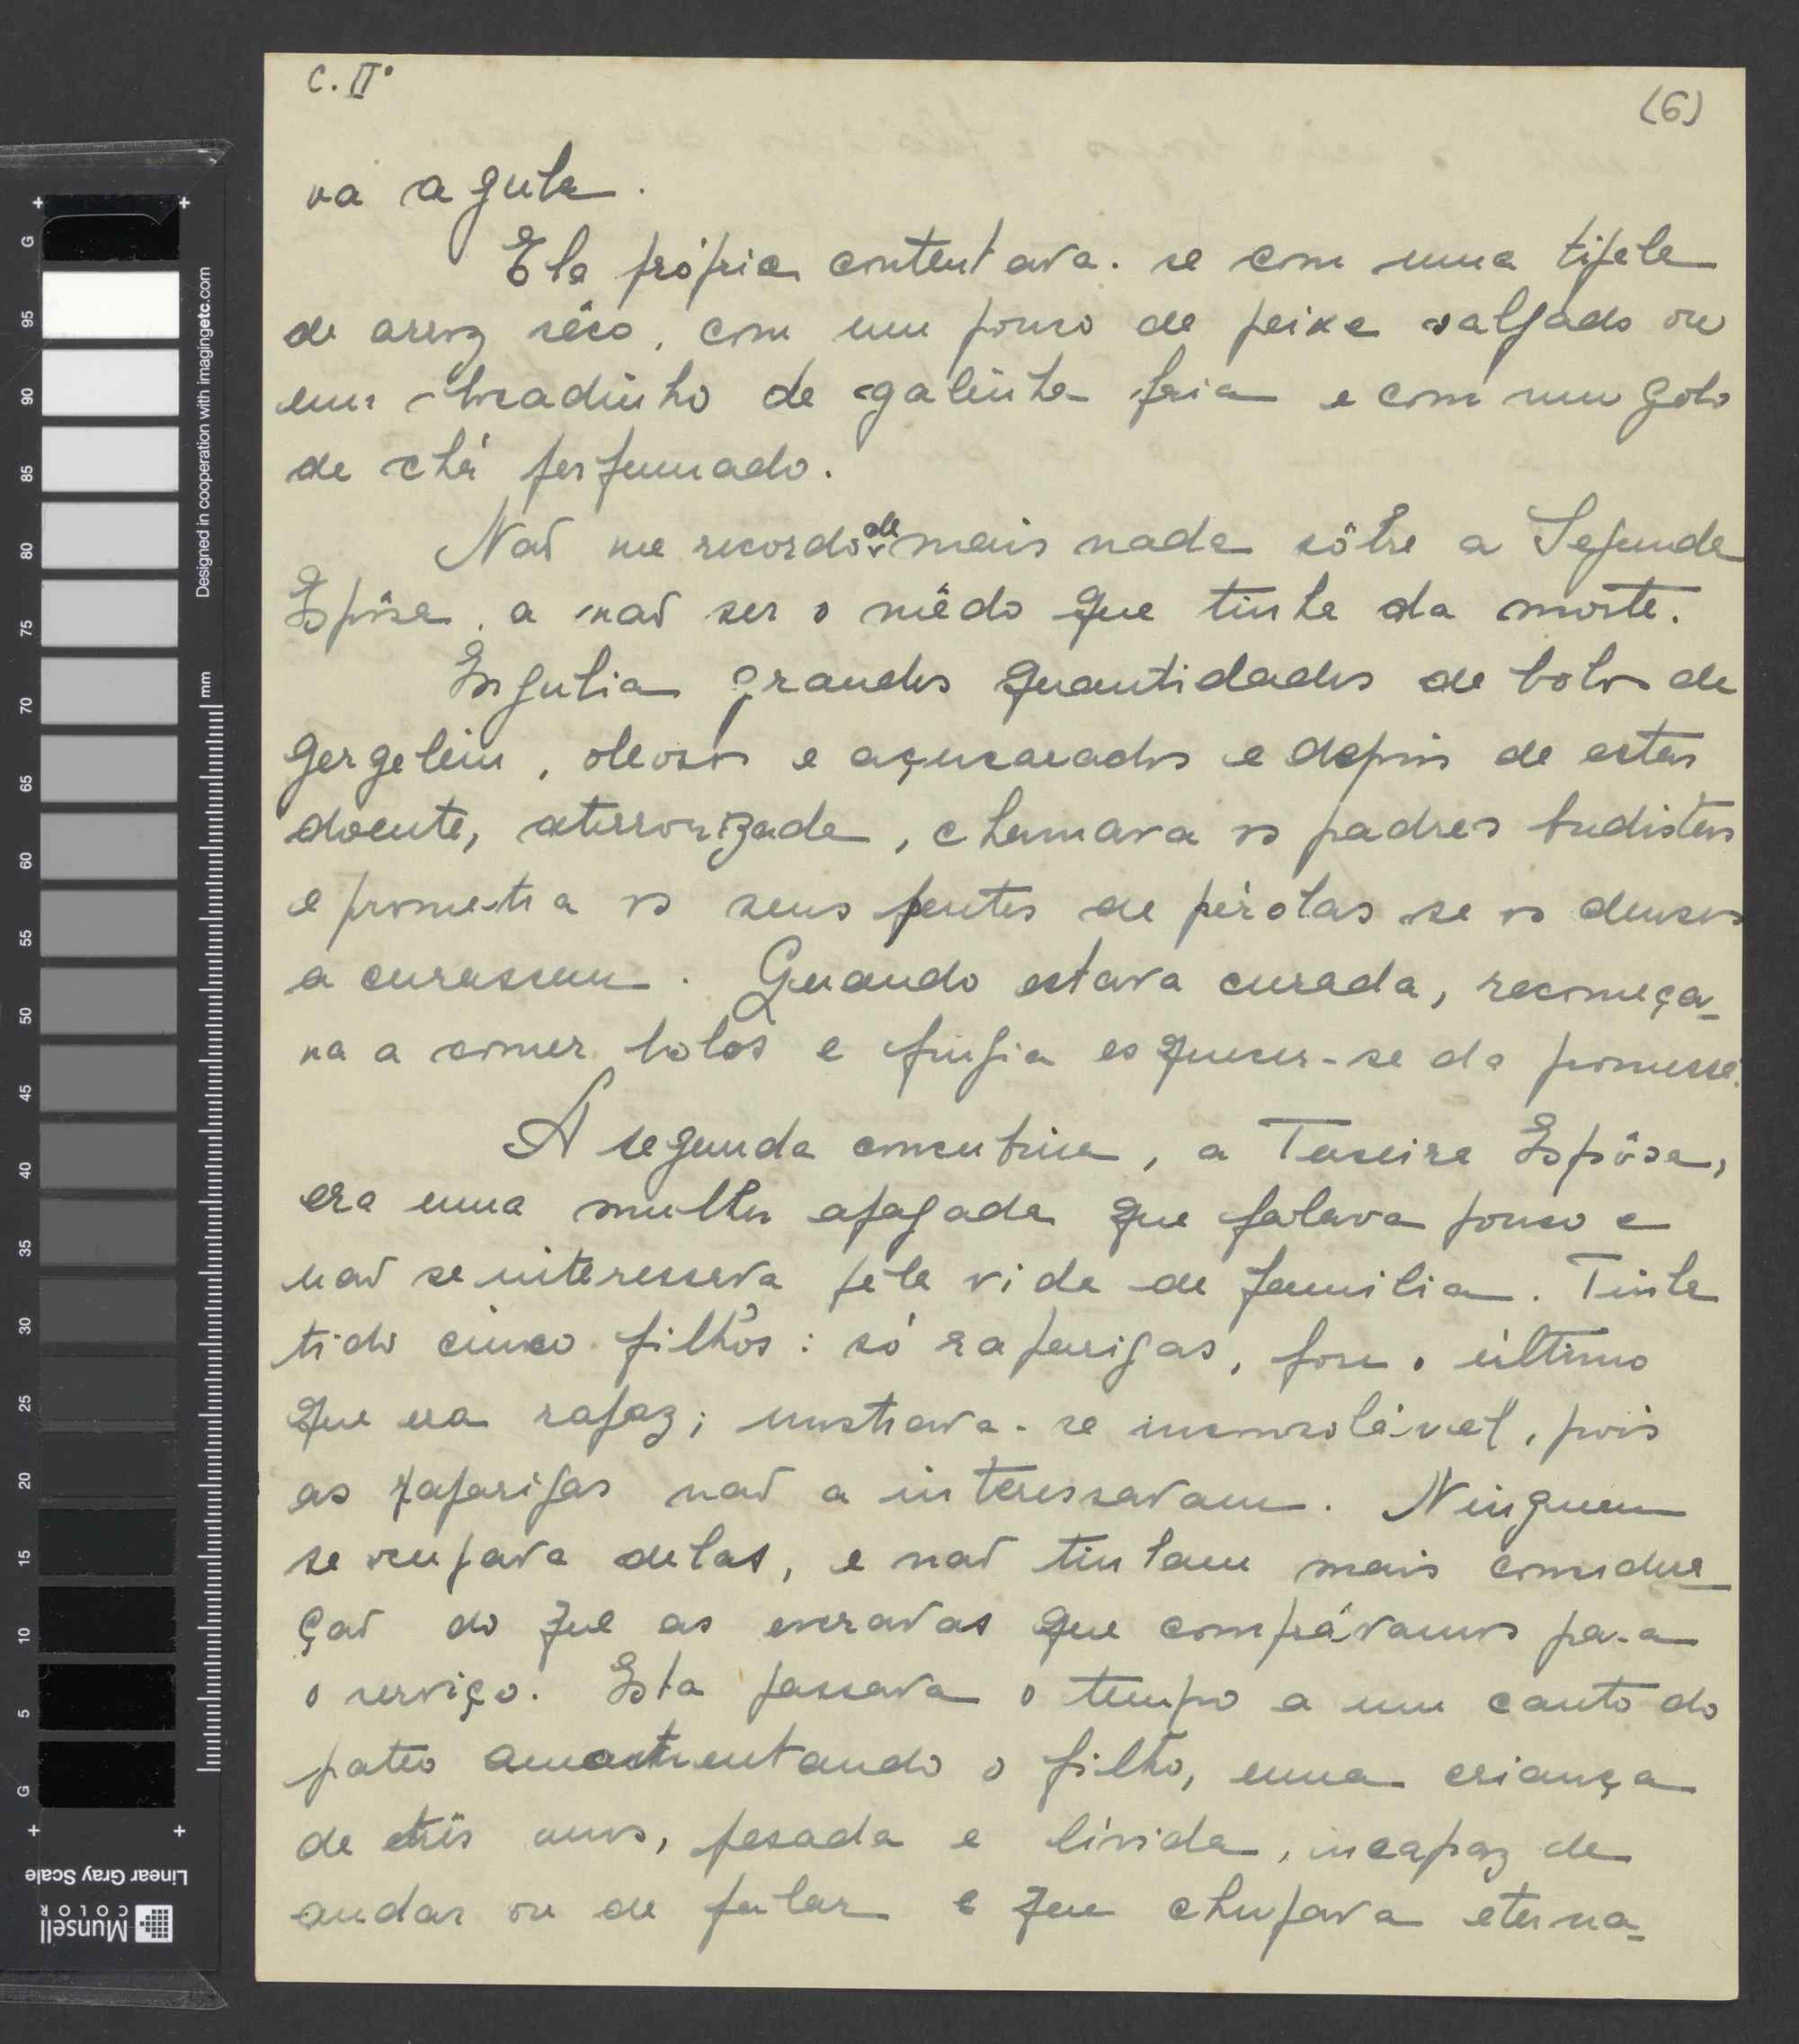 C. IIº
(6)
va a gula.
Ela própria contentava-se com uma tijela
de arroz sêco, com um pouco de peixe salgado ou
um bocadinho de galinha fria e com um golo
de chá perfumado.
Não me recordo de mais nada sôbre a Segunda
Espôsa, a não ser o mêdo que tinha da morte.
Engulia grandes quantidades de bolos de
gergelim, oleosos e açucarados e depois de estar
doente, aterrorizada, chamava os padres budistas
e prometia os seus pentes de pérolas se os deuses
a curassem. Quando estava curada, recomeça-
va a comer bolos e fingia esquecer-se da promessa.
A segunda concubina, a Terceira Espôsa,
era uma mulher apagada que falava pouco e
não se interessava pela vida de familia. Tinha
tido cinco filhos: só raparigas, fora o último
que era rapaz; mostrava-se inconsolável, pois
as raparigas não a interessavam. Ninguem
se ocupava delas, e não tinham mais considera-
ção do que as escravas que comprávamos para
o serviço. Esta passava o tempo a um canto do
pateo amamentando o filho, uma criança
de três anos, pesada e lívida, incapaz de
andar ou de falar e que chupava eterna-
Designed in cooperation with imagingetc.com
mm
G
95
90
85
80
75
70
65
60
55
50
45
40
35
30
25
20
15
10
5
G
Linear Gray Scale
Munsell
COLOR